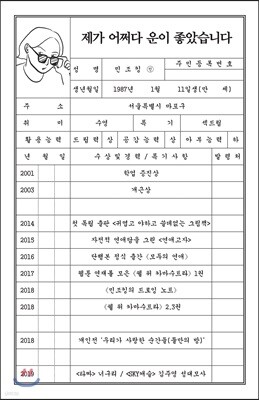 제가 어쩌다 운이 좋았습니다
성 명 민조킹 ㊞ 주민등록번호
생년월일 1987년 1월 11일생(만 세)
주 소 서울특별시 마포구
취 미 수영 특 기 섹드립
활용능력 드립력 상 공감능력 상 아부능력 하
년 월 일 수상및경력/특기사항 발령처
2001 학업 증진상
2003 개근상
2014 첫 독립 출판 <귀엽고 야하고 쓸데없는 그림책>
2015 자전적 연애담을 그린 <연애고자>
2016 단행본 정식 출간 <모두의 연애>
2017 웹툰 연재를 모은 <쉘 위 카마수트라> 1권
2018 <민조킹의 드로잉 노트>
2018 <쉘 위 카마수트라> 2,3권
2018 개인전 '우리가 사랑한 순간들(불안의 밤)'
2019 <타짜> 너구리 / <SKY캐슬> 김주영 성대모사